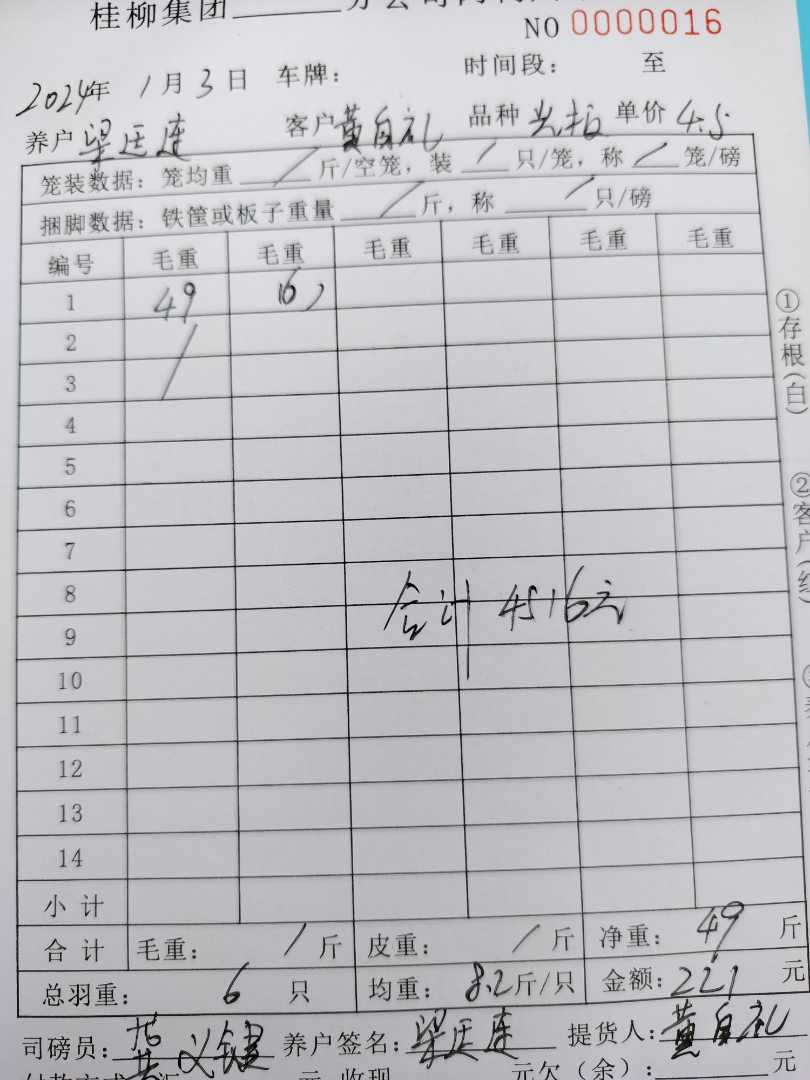 桂柳集团
NO 0000016
2024年 1月3日 车牌： 时间段： 至
养户 梁廷连 客户 黄自礼 品种 单价 4.5
笼装数据：笼均重 / 斤/空笼，装 / 只/笼，称 / 笼/磅
捆脚数据：铁筐或板子重量 / 斤，称 / 只/磅
编号 毛重 毛重 毛重 毛重 毛重 毛重
1 49
2 /
3
4
5
6
7
8
合计 4516元
9
10
11
12
13
14
小计
合计 毛重： / 斤 皮重： / 斤 净重： 49 斤
总羽重： 6 只 均重： 8.2 斤/只 金额： 221 元
司磅员： 养户签名： 梁廷连 提货人： 黄自礼
元 收现 元欠（余）： 元
①存根（白）
②客户（红）